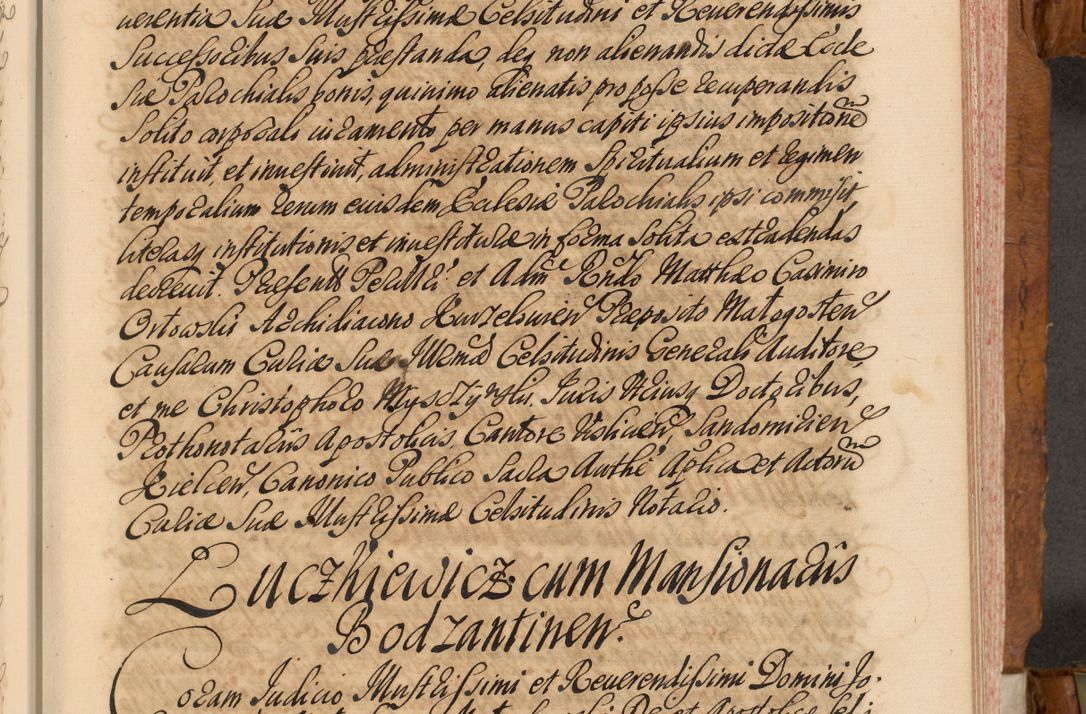 uerentia Suæ Illustrissimæ Celsitudini et Reuerendissimis
Successoribus Suis præstanda, deq non alienandis dictæ Eccle
siæ Parochialis bonis, quinimo alienatis pro posse recuperandis
Solito corporali iuramento per manus capiti ipsius impositione
instituit, et inuestiuit, administrationem Spiritualium et regimen
temporalium rerum eiusdem Ecclesiæ Parochialis ipsi commisit,
literasq institutionis et inuestituræ in forma Solita extradendas
decreuit. Præsentt Perlltri et Admr Rndo Matthæo Casimiro
Orłowski Archidiacono Kurzelouien Præposito Małogosten
Causarum Curiæ Suæ Illrmæ Celsitudinis Generali Auditore,
et me Christophoro Myszczyński, Juris Vtriusq Doctoribus,
Prothonotariis Apostolicis, Cantore Vislicien, Sandomirien
Kielcen, Canonico Publico Sacra Authe Aplica et Actorum
Curiæ Suæ Illustrissimæ Celsitudinis Notario.
Luczkiewicz cum Mansionariis
Bodzantinen.
Coram Judicio Illustrissimi et Reuerendissimi Domini Jo-